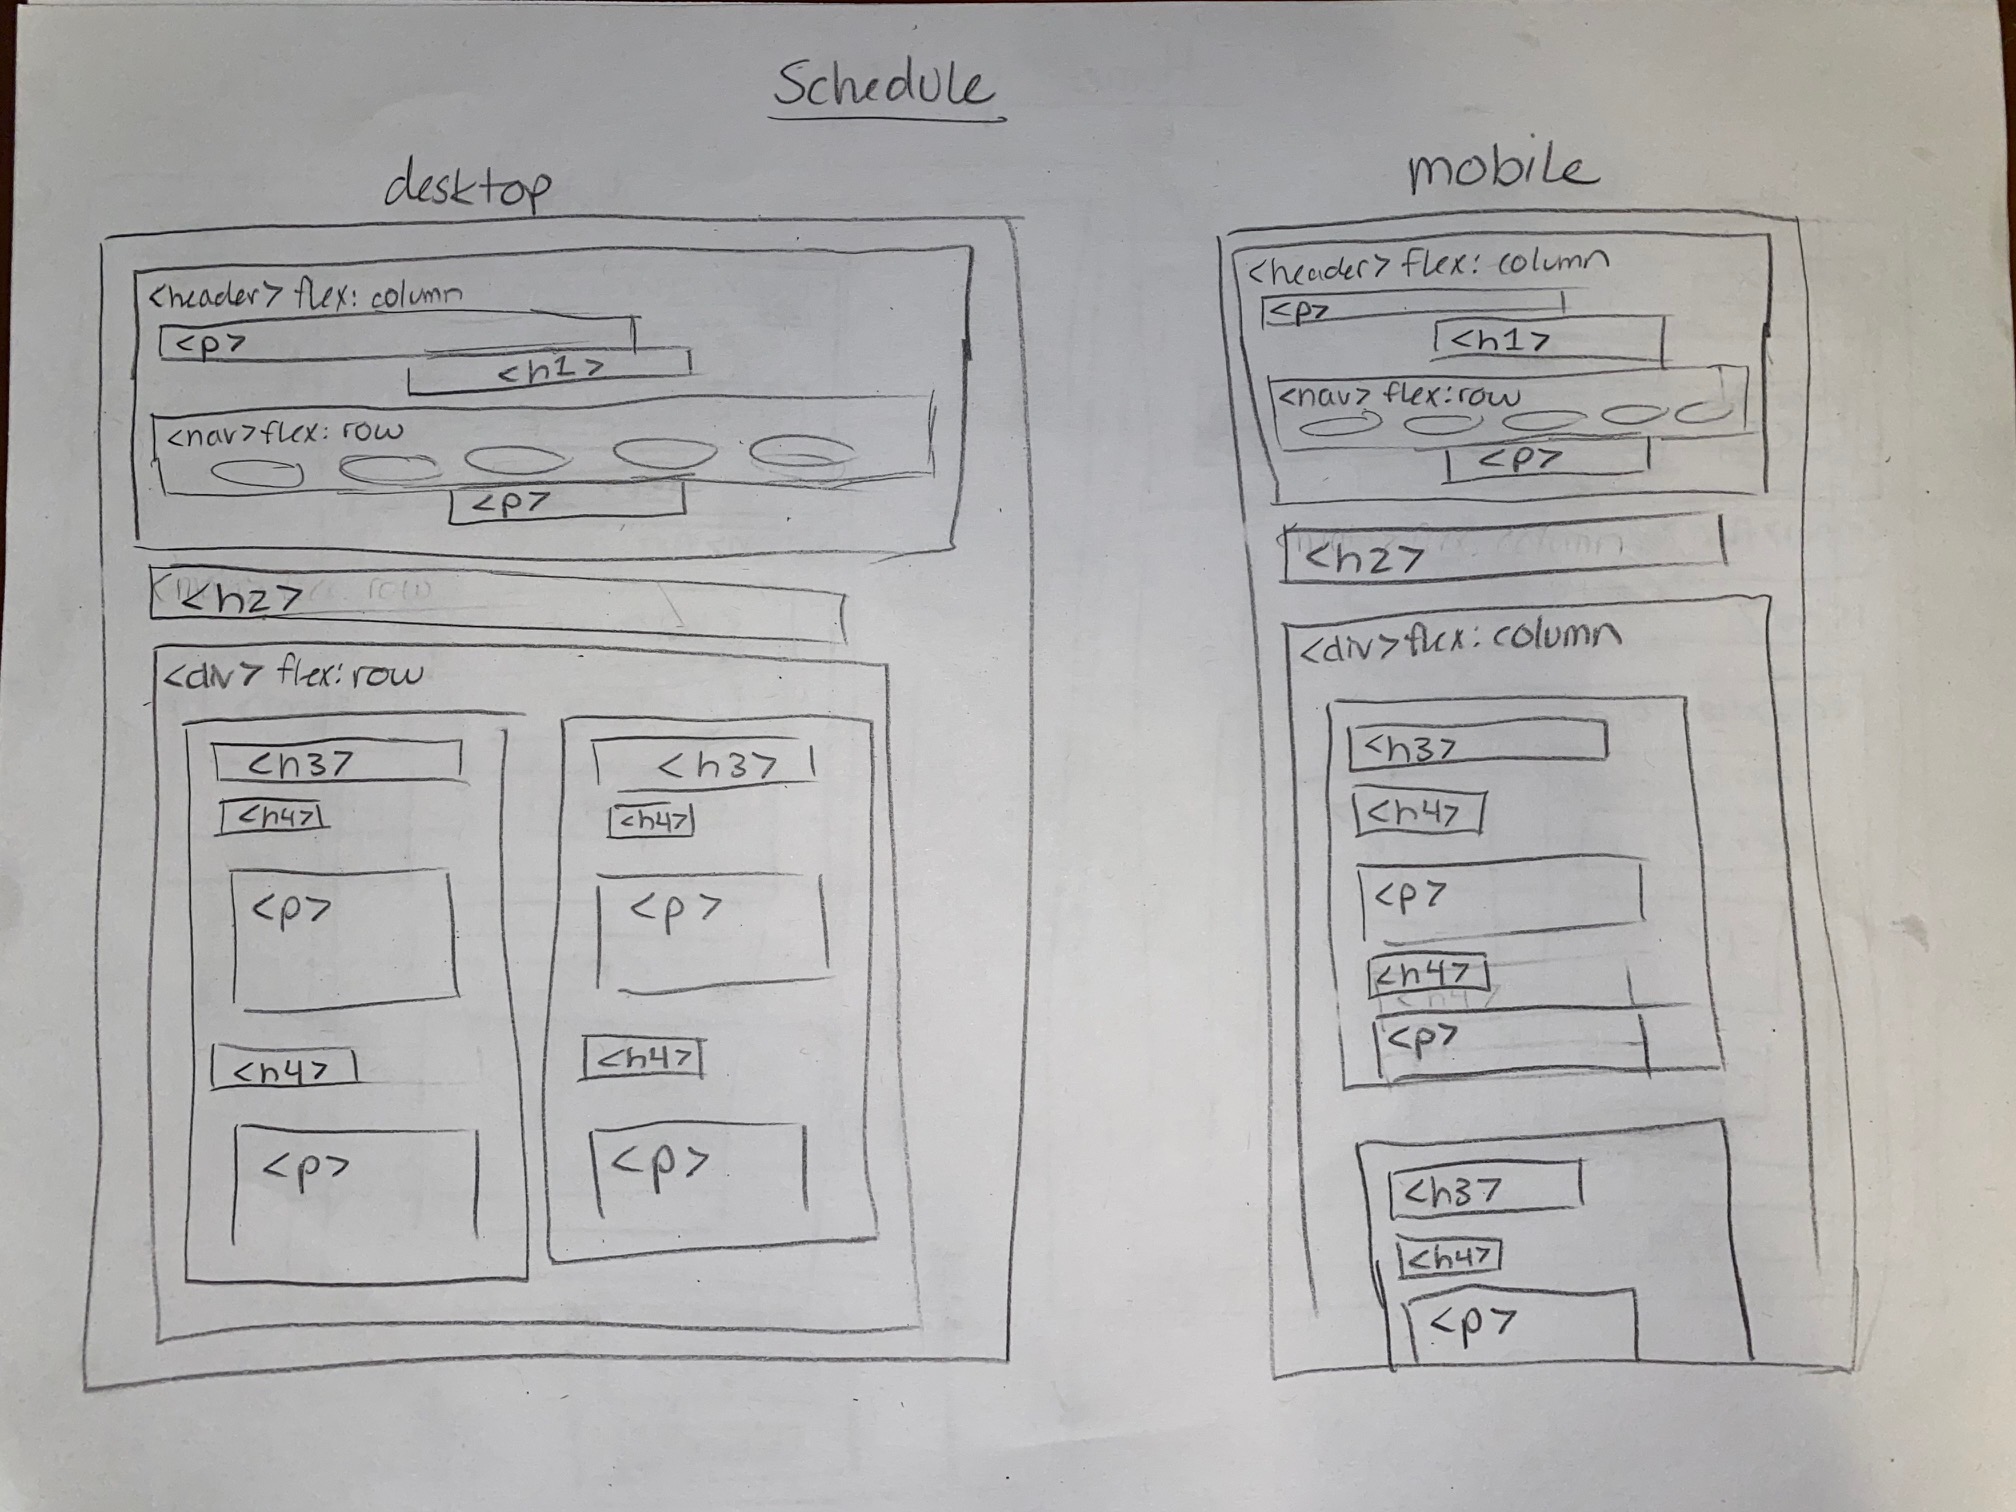 Schedule
desktop
<header> flex: column
<p>
<h1>
<nav> flex: row
<p>
<h2>
<div> flex: row
<h3>
<h4>
<p>
<h4>
<p>
<h3>
<h4>
<p>
<h4>
<p>
mobile
<header> flex: column
<p>
<h1>
<nav> flex: row
<p>
<h2>
<div> flex: column
<h3>
<h4>
<p>
<h4>
<h4>
<p>
<h3>
<h4>
<p>